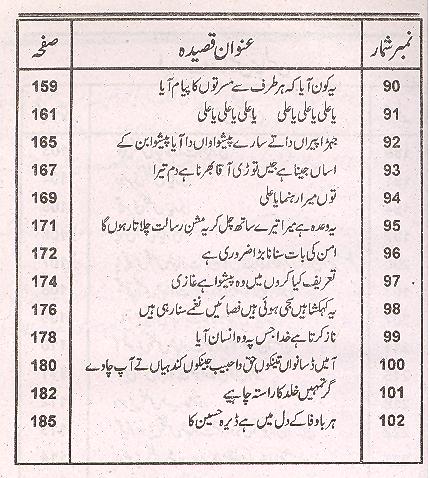 نمبر شمار عنوان قصیدہ صفحہ
90 یہ کون آیا کہ ہر طرف سے مسرتوں کا پیام آیا 159
91 یا علی یا علی یا علی یا علی یا علی یا علی 161
92 جہڑا پیراں دا تے سارے پیشواواں دا آیا پیشوا بن کے 165
93 اساں جینا ہے جیں توڑی آقا بھرنا ہے دم تیرا 167
94 توں میرا رہنما یا علی 169
95 یہ وعدہ ہے میرا تیرے ساتھ چل کر یہ مشن رسالت چلاتا رہوں گا 171
96 امن کی بات سنانا بڑا ضروری ہے 172
97 تعریف کیا کروں میں وہ پیشوا ہے غازی 174
98 یہ کہکشائیں سجی ہوئی ہیں فضائیں نغمے سنا رہی ہیں 176
99 ناز کرتا ہے خدا جس پہ وہ انسان آیا 178
100 آ میں ڈسانواں تیکوں حق دا حبیب جینکوں کندھیاں تے آپ چاوے 180
101 گر تمہیں خلد کا راستہ چاہیے 182
102 ہر باوفا کے دل میں ہے ڈیرہ حسین کا 185